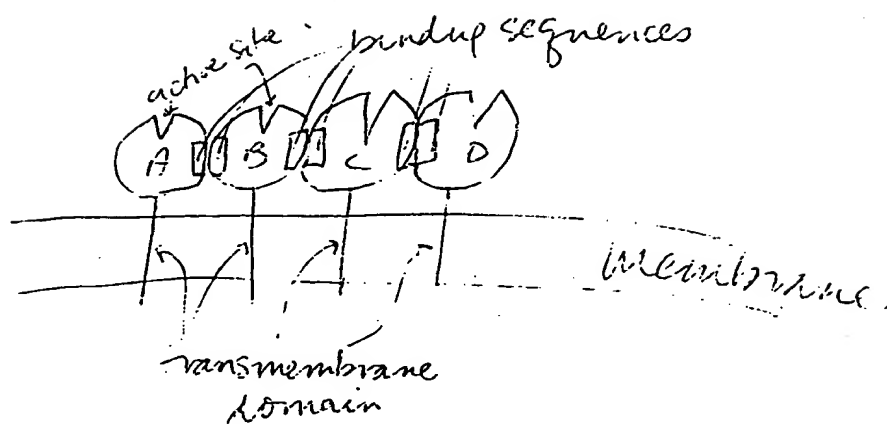 active site
binding sequences
A B C D
Membrane
transmembrane
domain